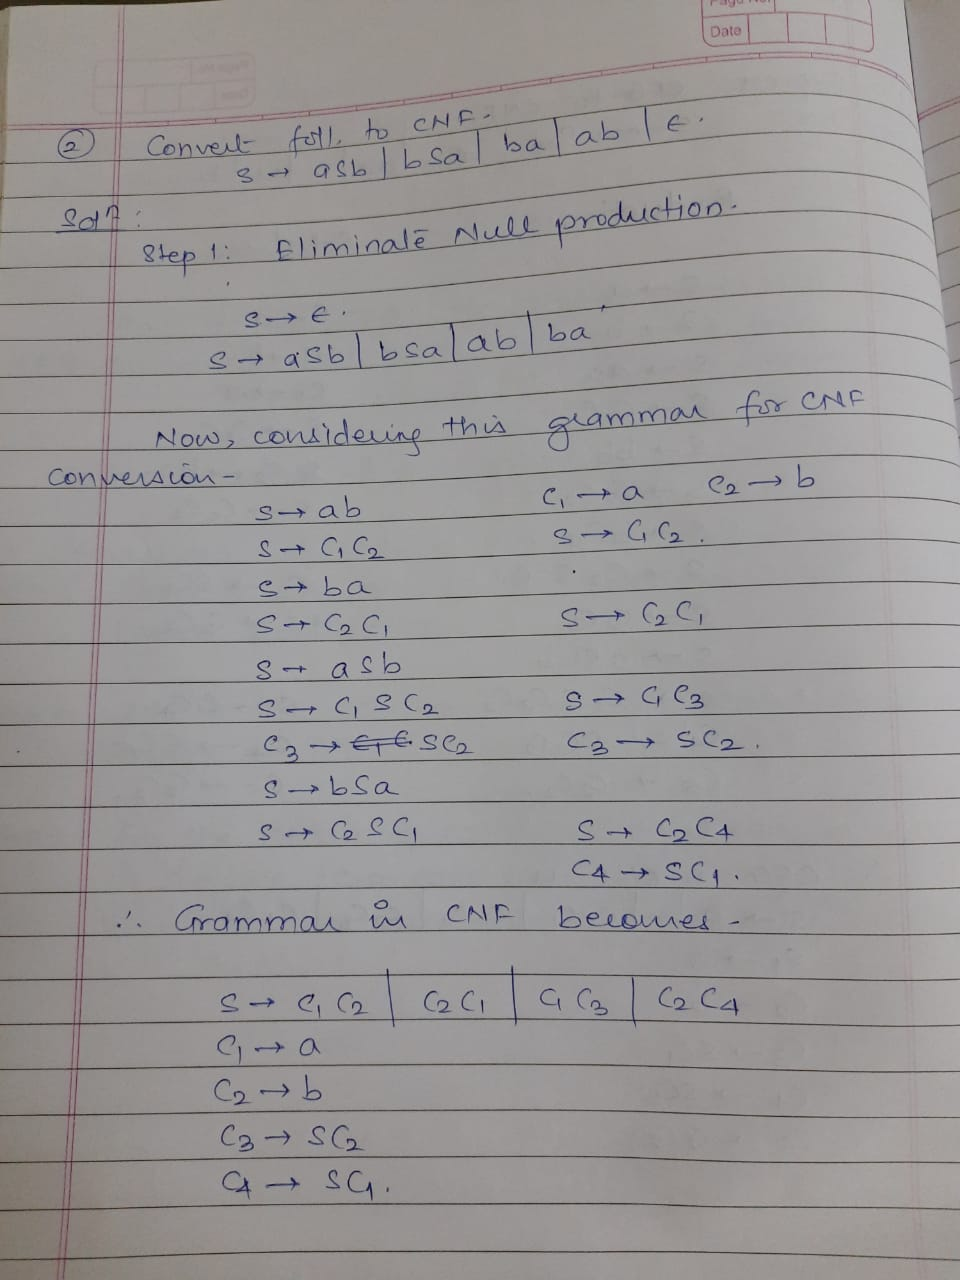 Page No.
Date
② Convert foll. to CNF.
S → aSb | bSa | ba | ab | ε.
Solⁿ:
Step 1: Eliminate Null production.
S → ε.
S → aSb | bSa | ab | ba
Now, considering this grammar for CNF
conversion-
S → ab C₁ → a C₂ → b
S → C₁ C₂ S → C₁ C₂.
S → ba
S → C₂ C₁ S → C₂ C₁
S → aSb
S → C₁ S C₂ S → C₁ C₃
C₃ → SC₂ C₃ → SC₂.
S → bSa
S → C₂ S C₁ S → C₂ C₄
C₄ → SC₁.
∴ Grammar in CNF becomes -
S → C₁ C₂ | C₂ C₁ | C₁ C₃ | C₂ C₄
C₁ → a
C₂ → b
C₃ → SC₂
C₄ → SC₁.